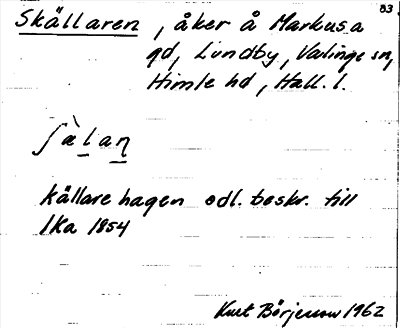 83
Skällaren, åker å Markusa
gd, Lindby, Valinge sn,
Himle hd, Hall. l.
ʃàlan
källare hagen odl. beskr. till
lka 1854
Kurt Börjesson 1962